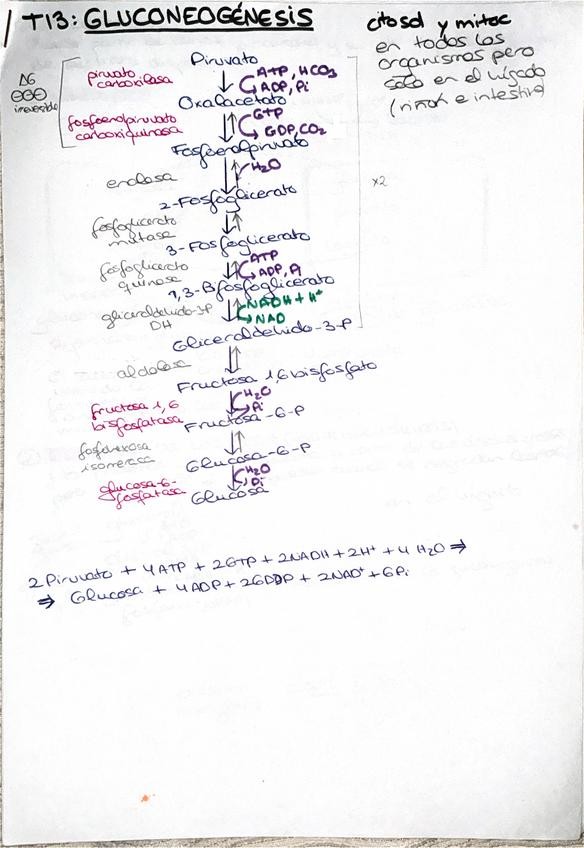 T13: GLUCONEOGÉNESIS
citosol y mitoc
en todos los
organismos pero
solo en el hígado
(riñón e intestino)
ΔG
⊖⊖⊖
irreversible
Piruvato
piruvato
carboxilasa
ATP, HCO3
ADP, Pi
Oxalacetato
fosfoenolpiruvato
carboxiquinasa
GTP
GDP, CO2
Fosfoenolpiruvato
enolasa
H2O
x2
2-Fosfoglicerato
fosfoglicerato
mutasa
3-Fosfoglicerato
fosfoglicerato
quinasa
ATP
ADP, Pi
1,3-Bifosfoglicerato
gliceraldehido-3P
DH
NADH + H+
NAD
Gliceraldehido-3-P
aldolasa
Fructosa 1,6 bisfosfato
fructosa 1,6
bisfosfatasa
H2O
Pi
Fructosa-6-P
fosfohexosa
isomerasa
Glucosa-6-P
glucosa-6-
fosfatasa
H2O
Pi
Glucosa
2 Piruvato + 4ATP + 2GTP + 2NADH + 2H+ + 4 H2O ⇒
⇒ Glucosa + 4ADP + 2GDP + 2NAD+ + 6Pi